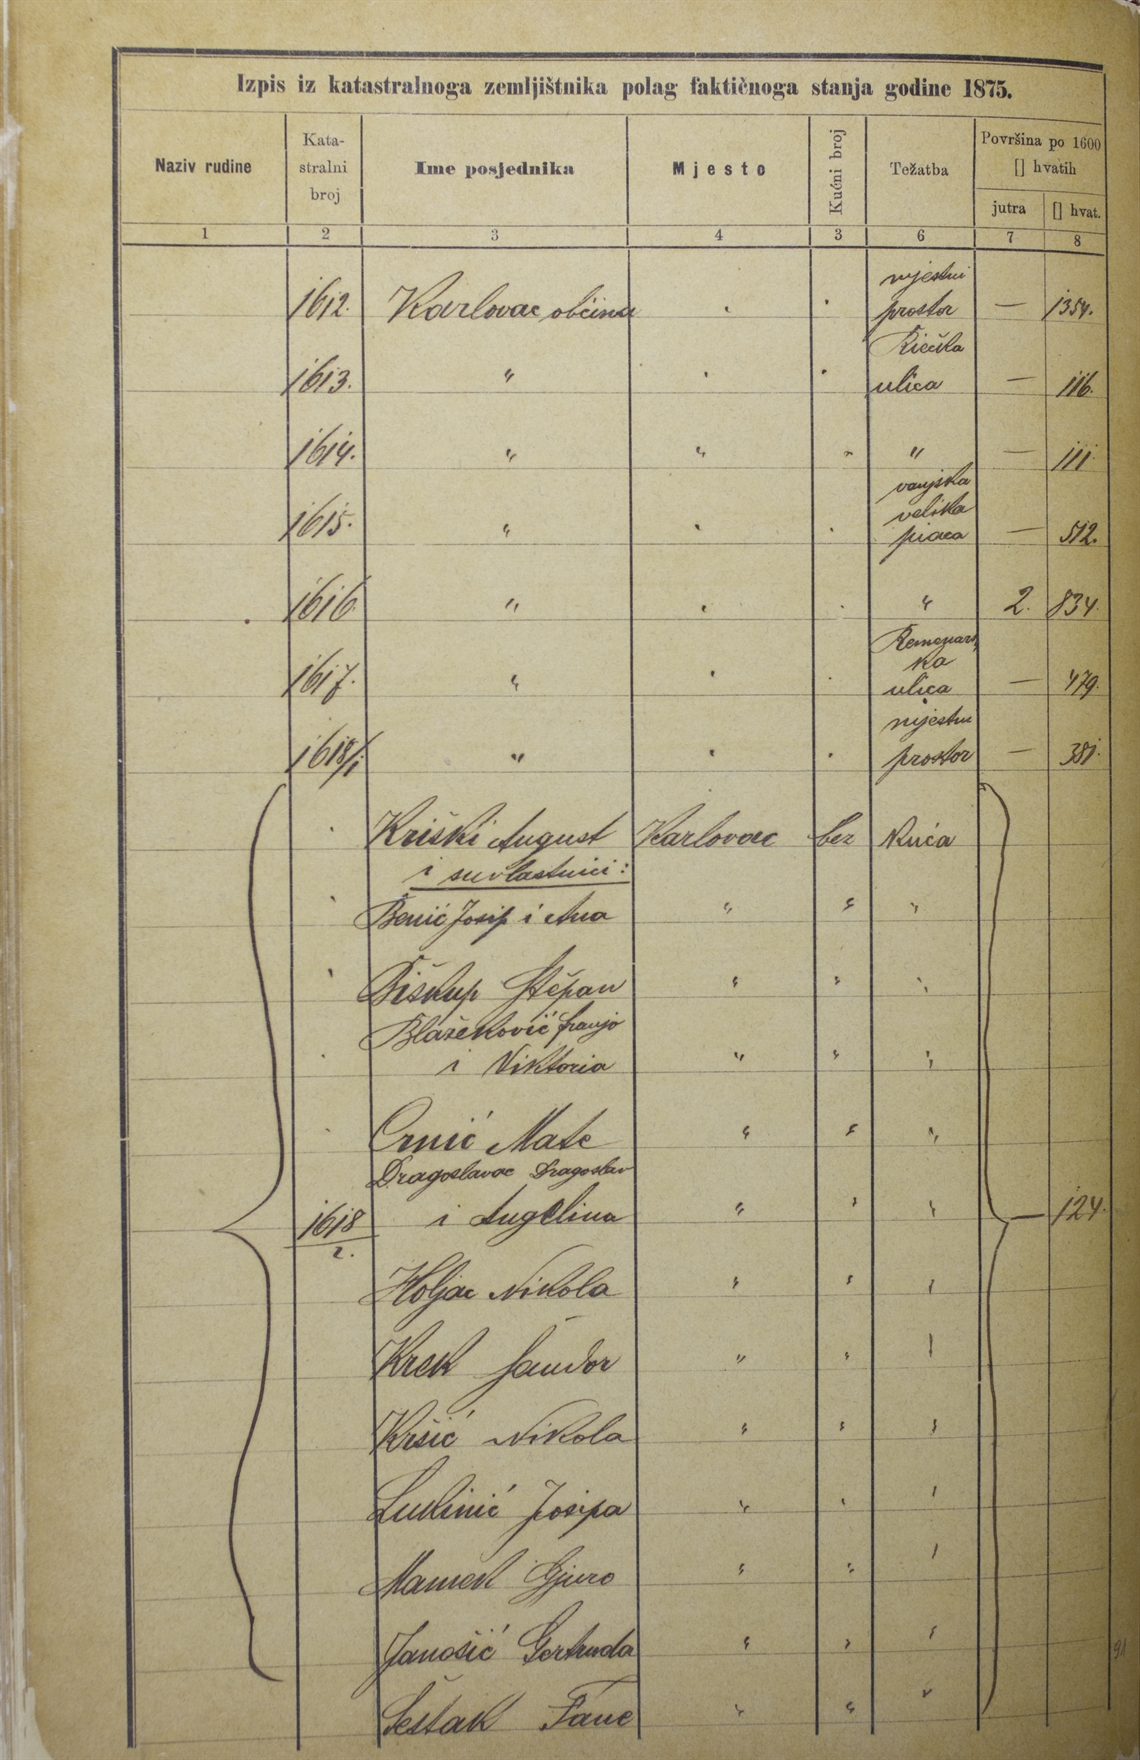 Izpis iz katastralnoga zemljištnika polag faktičnoga stanja godine 1875.
Naziv rudine
Kata-
stralni
broj
Ime posjednika
Mjesto
Kućni broj
Težatba
Površina po 1600
[] hvatih
jutra
[] hvat.
1 2 3 4 3 6 7 8
mjestni
1612. Karlovac občina " " prostor — 1354.
Riečka
1613. " " " ulica — 116.
1614. " " " " — 111.
vanjska
velika
1615. " " " piaca — 512.
1616. " " " " 2. 834.
ka
1617. " " " ulica — 479.
mjestni
1618/1 " " " prostor — 381.
Kriški August Karlovac bez Kuća
i suvlastnici:
Benić Josip i Ana " " "
Biškup Stěpan " " "
Blažeković Franjo
i Viktoria " " "
Crnić Mate " " "
Dragoslavac Dragoslav
1618/2. i Angelina " " " — 124.
Holjac Nikola " " "
Krek Šandor " " "
Kršić Nikola " " "
Lukinić Josipa " " "
Mamek Gjuro " " "
Janošić Gertruda " " "
Šestak Fane " " "
91